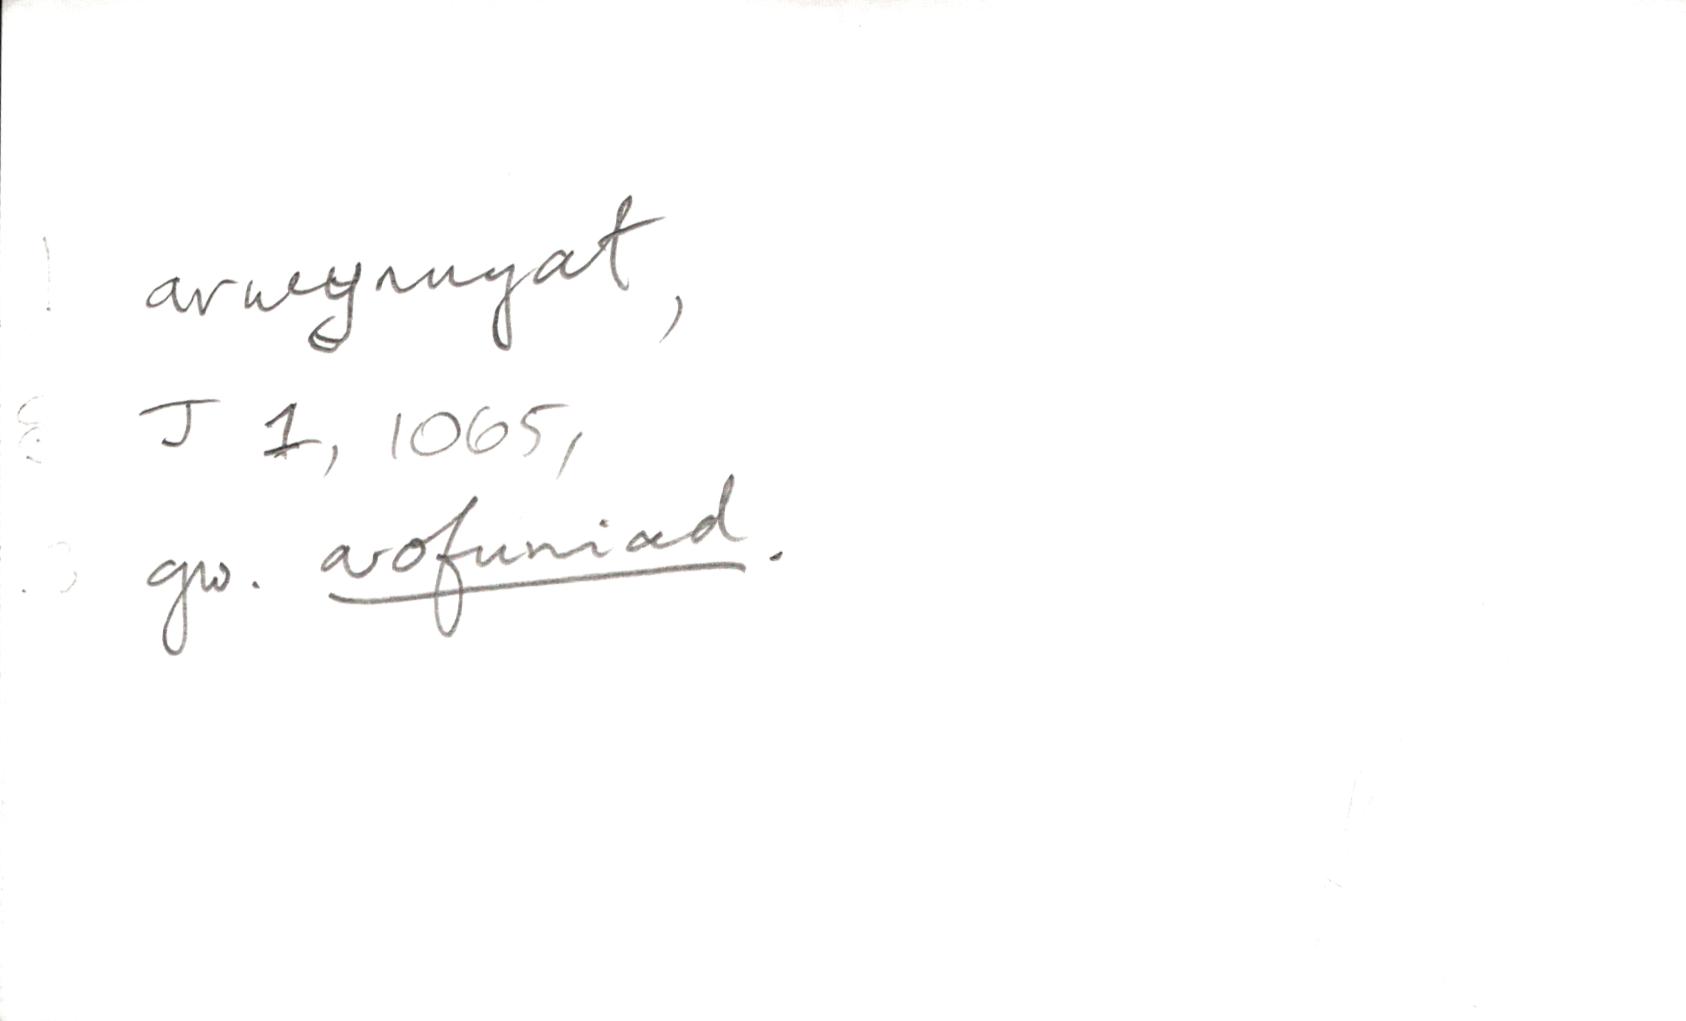 arweynuyat,
J 1, 1065,
gw. arofuniad.